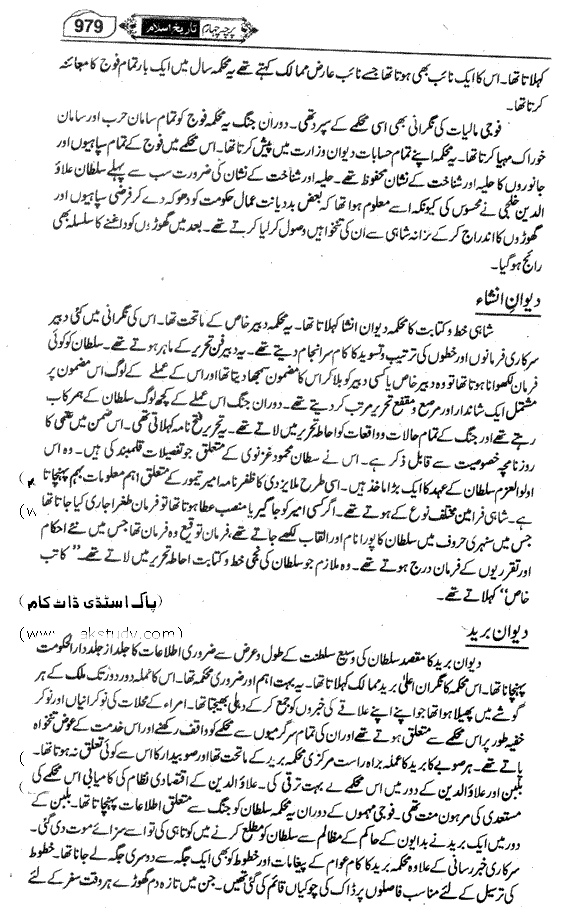 979 تاریخ اسلام پرچہ چہارم
کہلاتا تھا۔ اس کا ایک نائب بھی ہوتا تھا جسے نائب عارض ممالک کہتے تھے یہ محکمہ سال میں ایک بار تمام فوج کا معائنہ
کرتا تھا۔
فوجی مالیات کی نگرانی بھی اسی محکمے کے سپرد تھی۔ دوران جنگ یہ محکمہ فوج کو تمام سامان حرب اور سامان
خوراک مہیا کرتا تھا۔ یہ محکمہ اپنے تمام حسابات دیوان وزارت میں پیش کرتا تھا۔ اس محکمے میں فوج کے تمام سپاہیوں اور
جانوروں کا حلیہ اور شناخت کے نشان محفوظ تھے۔ حلیہ اور شناخت کے نشان کی ضرورت سب سے پہلے سلطان علاؤ
الدین خلجی نے محسوس کی کیونکہ اسے معلوم ہوا تھا کہ بعض بددیانت عمال حکومت کو دھوکہ دے کر فرضی سپاہیوں اور
گھوڑوں کا اندراج کر کے خزانہ شاہی سے ان کی تنخواہیں وصول کر لیا کرتے تھے۔ بعد میں گھوڑوں کو داغنے کا سلسلہ بھی
رائج ہو گیا۔
دیوانِ انشاء
شاہی خط و کتابت کا محکمہ دیوان انشا کہلاتا تھا۔ یہ محکمہ دبیر خاص کے ماتحت تھا۔ اس کی نگرانی میں کئی دبیر
سرکاری فرمانوں اور خطوں کی ترتیب و تسوید کا کام سرانجام دیتے تھے۔ یہ دبیر فن تحریر کے ماہر ہوتے تھے۔ سلطان کو کوئی
فرمان لکھوانا ہوتا تھا تو وہ دبیر خاص یا کسی دبیر کو بلا کر اس کا مضمون سمجھا دیتا تھا اور اس کے عملے کے لوگ اس مضمون پر
مشتمل ایک شاندار اور مرصع و مقفع تحریر مرتب کر دیتے تھے۔ دوران جنگ اس عملے کے کچھ لوگ سلطان کے ہمرکاب
رہتے تھے اور جنگ کے تمام حالات و واقعات کو احاطہ تحریر میں لاتے تھے۔ یہ تحریر فتح نامہ کہلاتی تھی۔ اس ضمن میں عتبی کا
روزنامچہ خصوصیت سے قابل ذکر ہے۔ اس نے سلطان محمود غزنوی کے متعلق جو تفصیلات قلمبند کی ہیں۔ وہ اس
اولوالعزم سلطان کے عہد کا ایک بڑا ماخذ ہیں۔ اسی طرح ملا یزدی کا ظفر نامہ امیر تیمور کے متعلق اہم معلومات بہم پہنچاتا
ہے۔ شاہی فرامین مختلف نوع کے ہوتے تھے۔ اگر کسی امیر کو جاگیر یا منصب عطا ہوتا تھا تو فرمان طغرا جاری کیا جاتا تھا
جس میں سنہری حروف میں سلطان کا پورا نام اور القاب لکھے جاتے تھے، فرمان توقیع وہ فرمان تھا جس میں نئے احکام
اور تقرریوں کے فرمان درج ہوتے تھے۔ وہ ملازم جو سلطان کی نجی خط و کتابت احاطہ تحریر میں لاتے تھے۔ "کاتب
خاص" کہلاتے تھے۔
(پاک اسٹڈی ڈاٹ کام)
دیوان برید
دیوان برید کا مقصد سلطان کی وسیع سلطنت کے طول و عرض سے ضروری اطلاعات کا جلد از جلد دارالحکومت
پہنچانا تھا۔ اس محکمہ کا نگران اعلیٰ برید ممالک کہلاتا تھا۔ یہ بہت اہم اور ضروری محکمہ تھا۔ اس کا عملہ دور دور تک ملک کے ہر
گوشے میں پھیلا ہوا تھا جو اپنے اپنے علاقے کی خبروں کو جمع کر کے دہلی بھیجتا تھا۔ امراء کے محلات کی نوکرانیاں اور نوکر
خفیہ طور پر اس محکمے سے متعلق ہوتے تھے اور ان کی تمام سرگرمیوں سے محکمے کو واقف رکھتے اور اس خدمت کے عوض تنخواہ
پاتے تھے۔ ہر صوبے کا برید کا عملہ براہ راست مرکزی محکمہ برید کے ماتحت تھا اور صوبیدار کا اس سے کوئی تعلق نہ ہوتا تھا۔
بلبن اور علاؤ الدین کے دور میں اس محکمے نے بہت ترقی کی۔ علاؤ الدین کے اقتصادی نظام کی کامیابی اس محکمے کی
مستعدی کی مرہون منت تھی۔ فوجی مہموں کے دوران یہ محکمہ سلطان کو جنگ سے متعلق اطلاعات پہنچاتا تھا۔ بلبن کے
دور میں ایک برید نے بدایون کے حاکم کے مظالم سے سلطان کو مطلع کرنے میں کوتاہی کی تو اسے سزائے موت دی گئی۔
سرکاری خبر رسانی کے علاوہ محکمہ برید کا کام عوام کے پیغامات اور خطوط کو بھی ایک جگہ سے دوسری جگہ لے جانا تھا۔ خطوط
کی ترسیل کے لئے مناسب فاصلوں پر ڈاک کی چوکیاں قائم کی گئی تھیں۔ جن میں تازہ دم گھوڑے ہر وقت سفر کے لئے